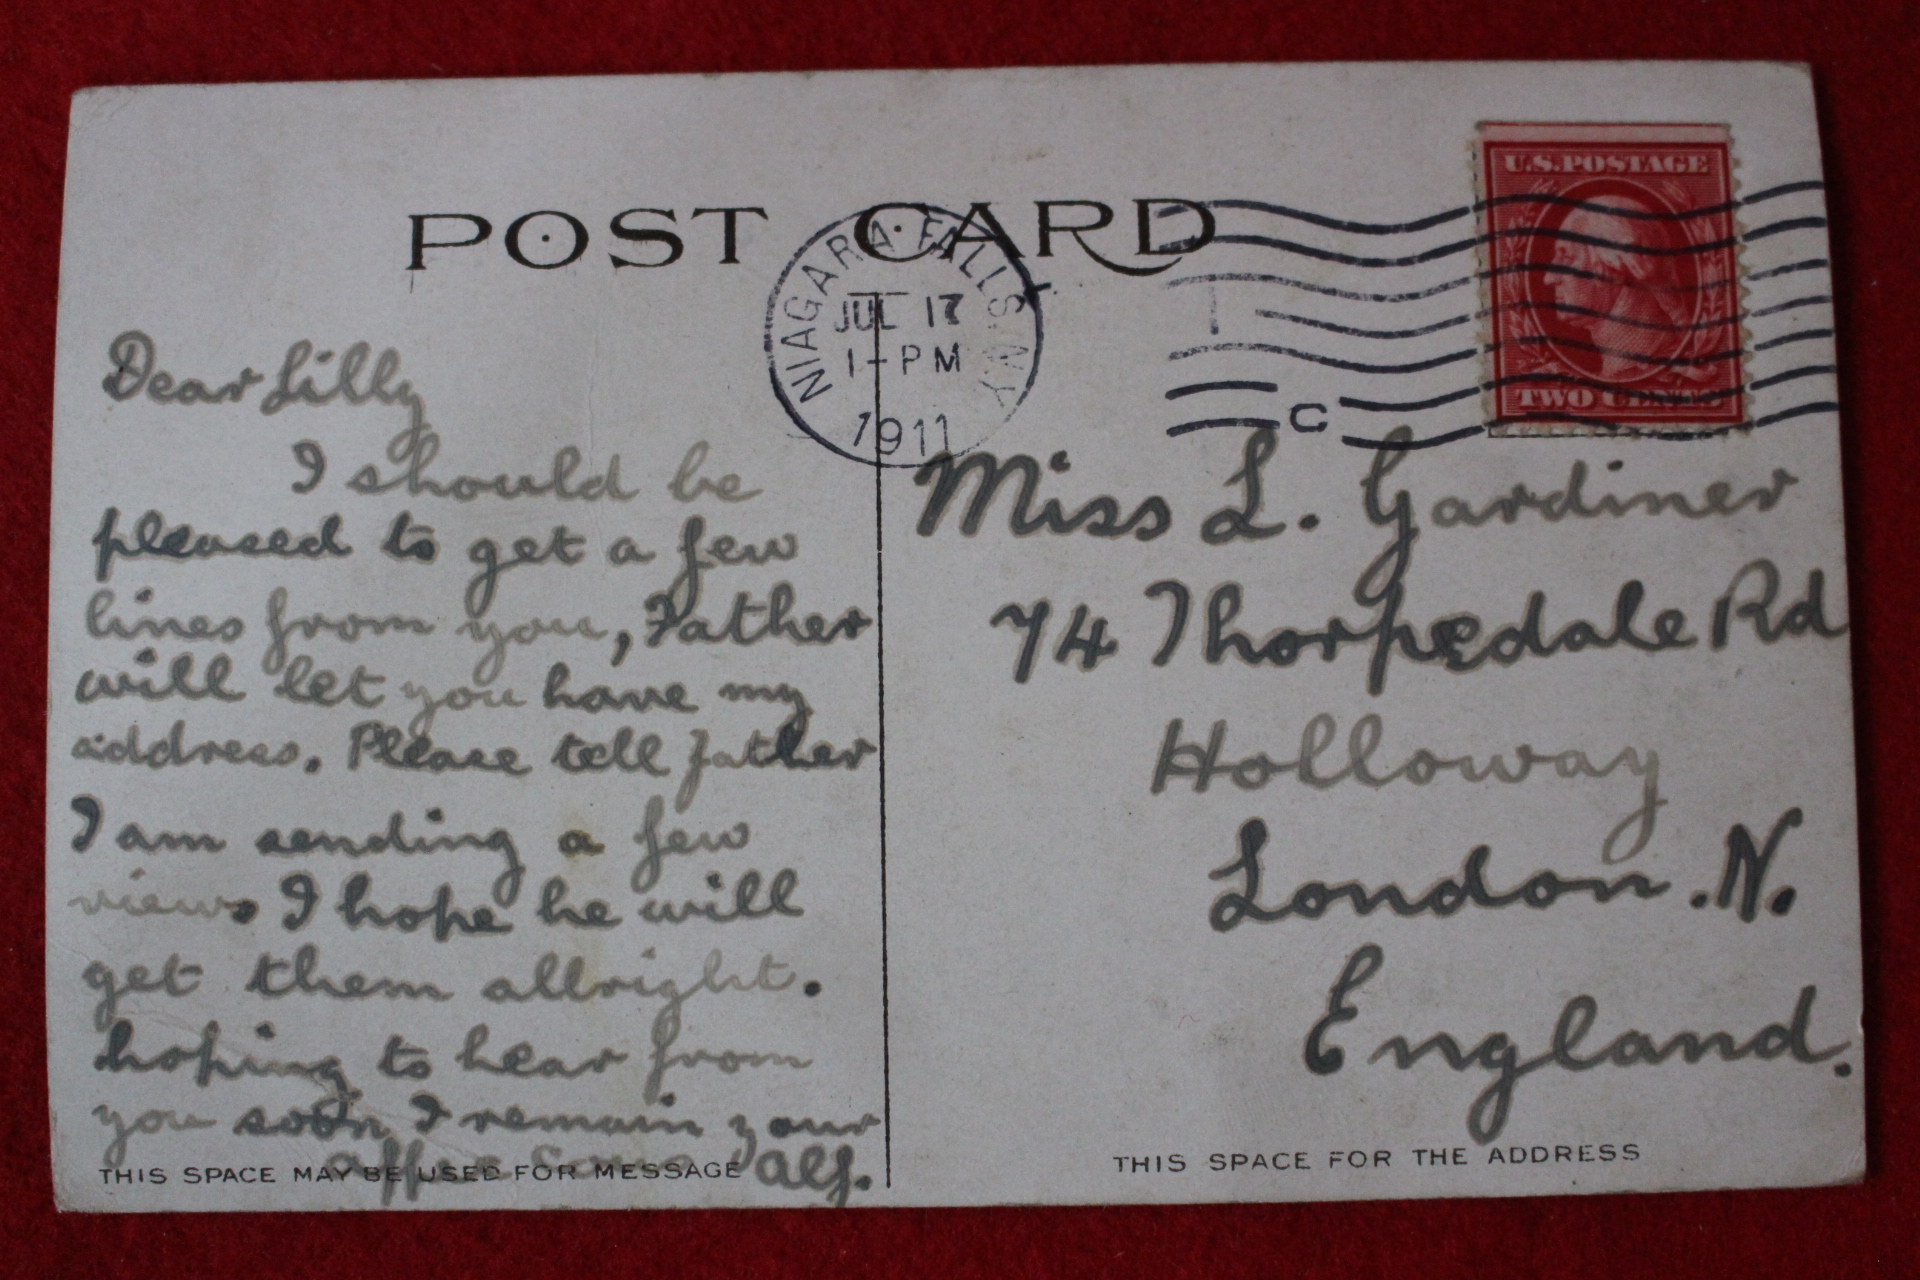 POST CARD
NIAGARA FALLS. N.Y.
JUL 17
1-PM
1911
C
U.S.POSTAGE
TWO CENTS 2
Dear Lilly
I should be
pleased to get a few
lines from you, Father
will let you have my
address. Please tell Father
I am sending a few
views I hope he will
get them allright.
hoping to hear from
you soon I remain your
Alf.
THIS SPACE MAY BE USED FOR MESSAGE
Miss L. Gardiner
74 Thorpedale Rd
Holloway
London. N.
England.
THIS SPACE FOR THE ADDRESS